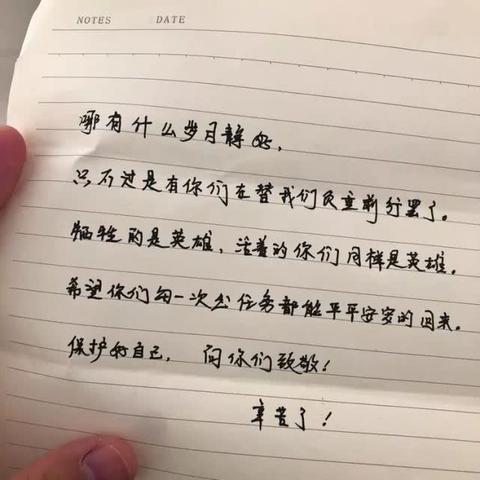 NOTES DATE
哪有什么岁月静好，
只不过是有你们在替我们负重前行罢了。
牺牲的是英雄、活着的你们同样是英雄。
希望你们每一次出任务都能平平安安的回来。
保护好自己， 向你们致敬！
辛苦了！